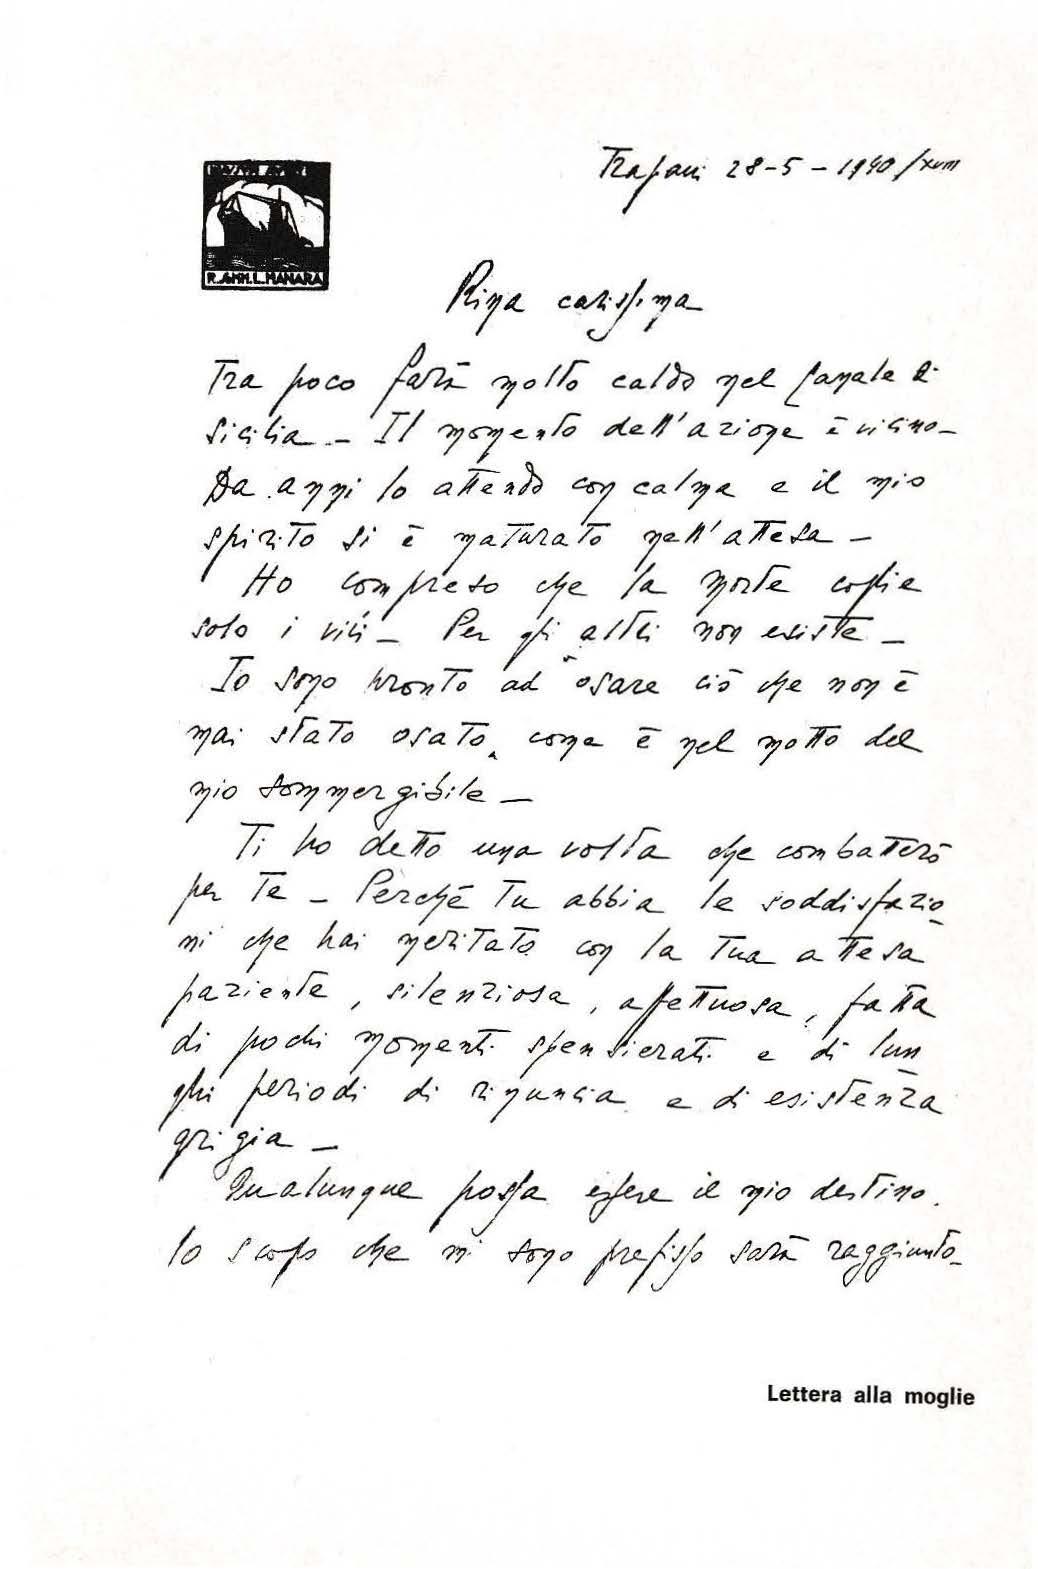 Trapani 28-5-1940/XVIII
R. SMM. L. MANARA
Rina carissima
Tra poco farà molto caldo nel Canale di
Sicilia - Il momento dell'azione è vicino -
Da anni lo attendo con calma e il mio
spirito si è maturato nell'attesa -
Ho compreso che la morte coglie
solo i vili - Per gli altri non esiste -
Io sono pronto ad "osare ciò che non è
mai stato osato" come è nel motto del
mio sommergibile -
Ti ho detto una volta che combatterò
per te - Perché tu abbia le soddisfazio
ni che hai meritato con la tua attesa
paziente, silenziosa, affettuosa, fatta
di pochi momenti spensierati e di lun
ghi periodi di rinuncia e di esistenza
grigia -
Qualunque possa essere il mio destino,
lo scopo che mi sono prefisso sarà raggiunto -
Lettera alla moglie